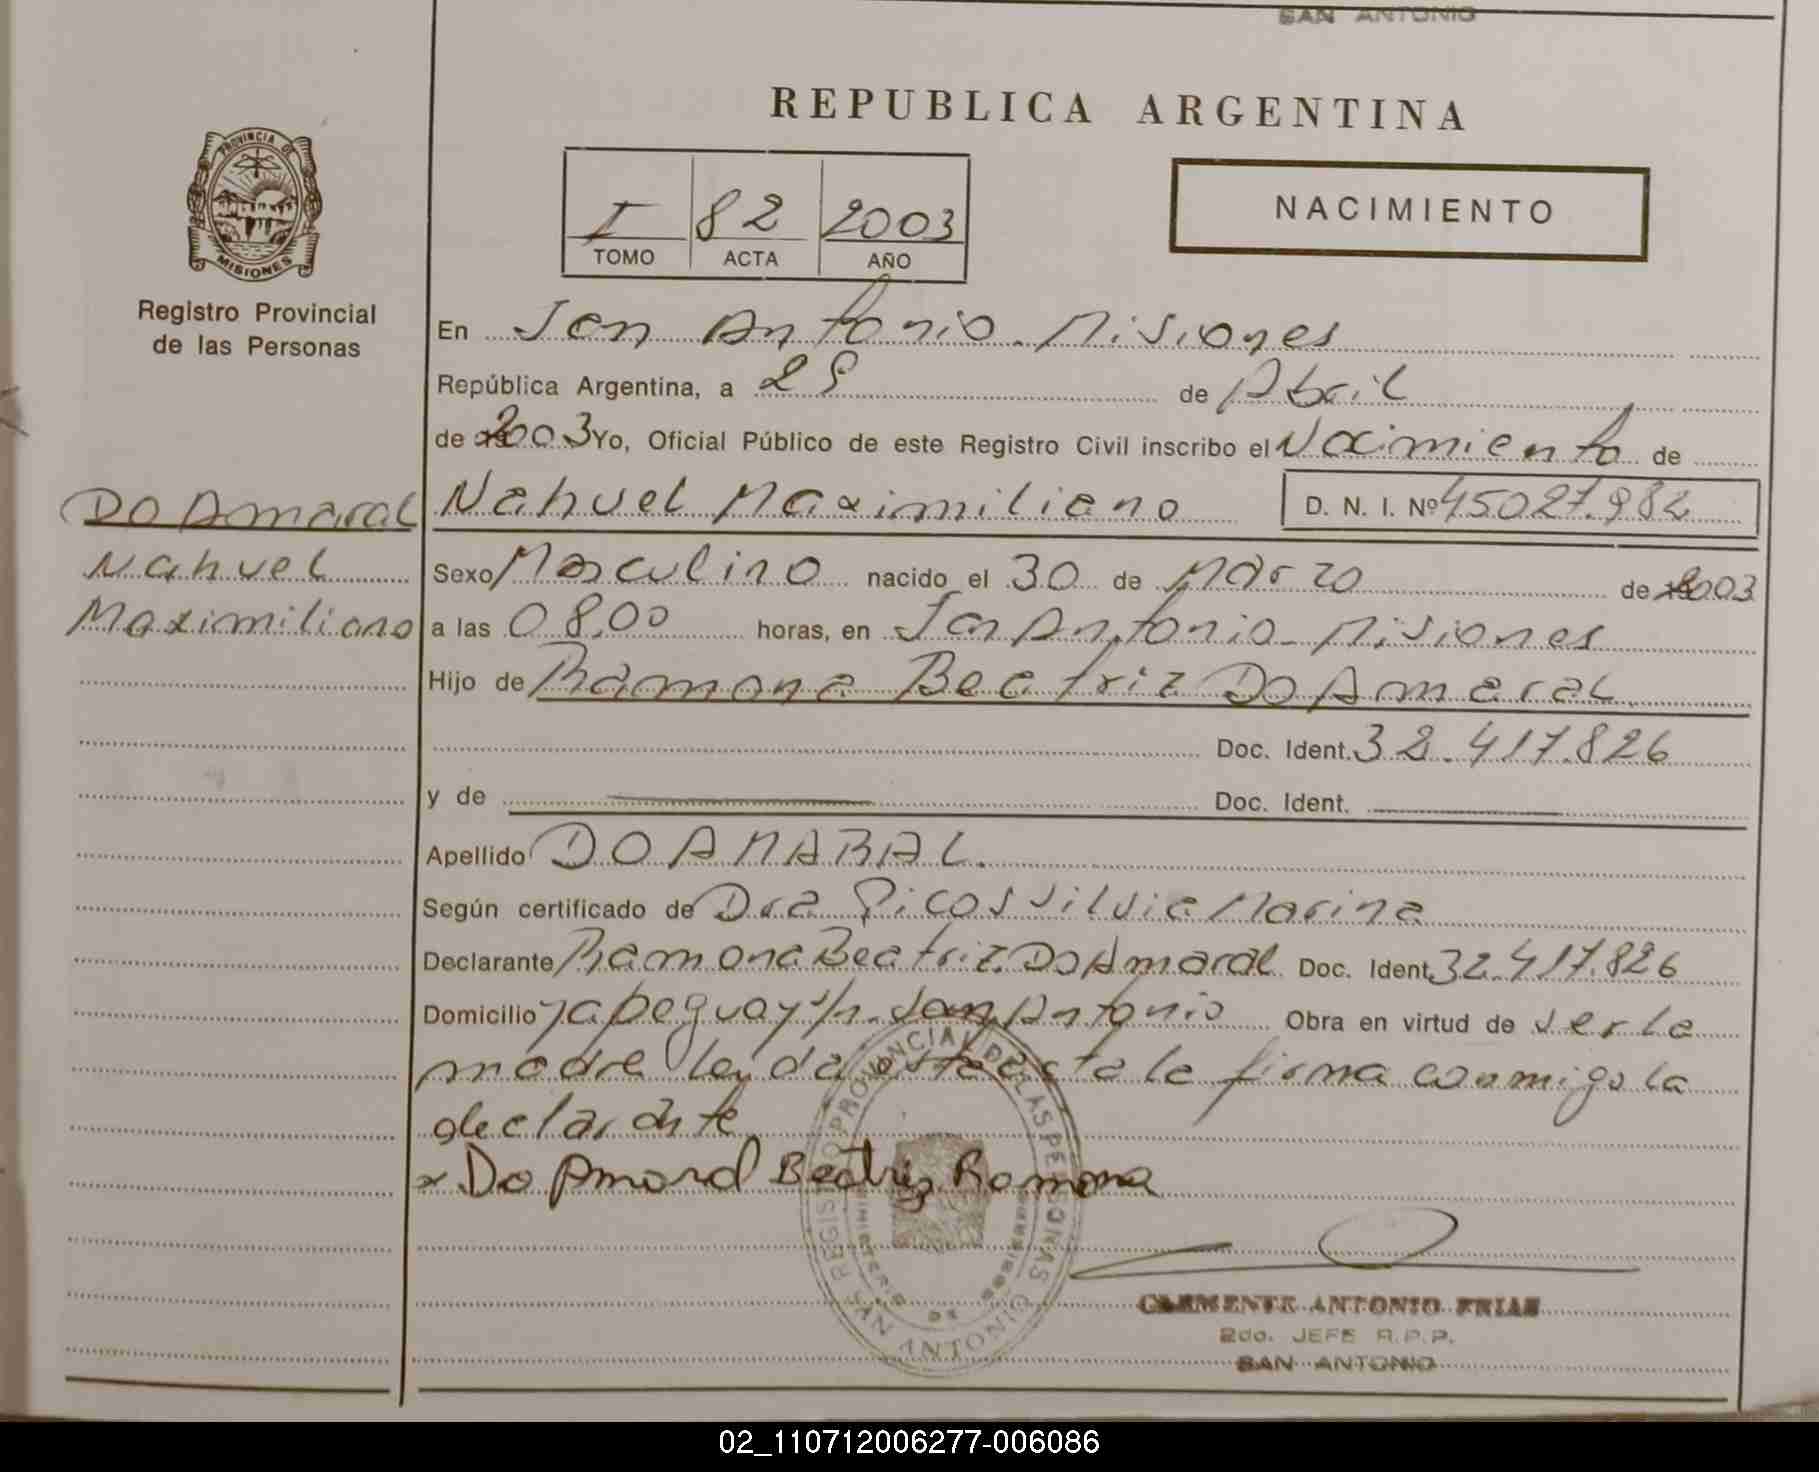 SAN ANTONIO
REPUBLICA ARGENTINA
PROVINCIA DE
MISIONES
Registro Provincial
de las Personas
I 82 2003
TOMO ACTA AÑO
NACIMIENTO
En San Antonio. Misiones
República Argentina, a 29 de Abril
de 2003 Yo, Oficial Público de este Registro Civil inscribo el Nacimiento de
Do Amaral
Nahuel
Maximiliano
Nahuel Maximiliano D. N. I. Nº 45027.982
Sexo Masculino nacido el 30 de Marzo de 2003
a las 08,00 horas, en San Antonio - Misiones
Hijo de Ramona Beatriz Do Amaral
Doc. Ident. 32.417.826
y de Doc. Ident.
Apellido DO AMARAL.
Según certificado de Dra Picos Silvia Marina
Declarante Ramona Beatriz Do Amaral Doc. Ident. 32.417.826
Domicilio Yapeguay s/n. San Antonio Obra en virtud de ser la
madre leyda esta acta la firma conmigo la
declarante
x Do Amaral Beatriz Ramona
REGISTRO PROVINCIAL DE LAS PERSONAS
MINISTERIO DE GOBIERNO
SAN ANTONIO
CLEMENTE ANTONIO FRIAS
2do. JEFE R.P.P.
SAN ANTONIO
02_110712006277-006086